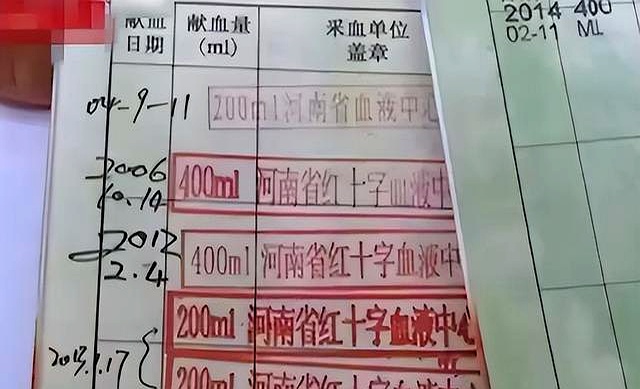 献血 献血量 采血单位
日期 (ml) 盖章
04-9-11 200ml 河南省血液中心
2006 400ml 河南省红十字血液中
10.14
2012 400ml 河南省红十字血液中
2.4
200ml 河南省红十字血液中心
200ml 河南省红十字血液中心
2014 400
02-11 ML